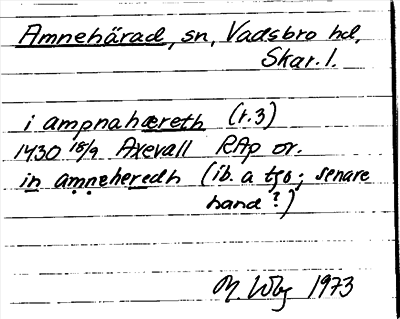 Amnehärad, sn, Vadsbro hd,
Skar. l.
i ampnahæreth (r.3)
1430 18/9 Axevall RAp or.
in amneheredh (ib. a tgo; senare
hand?)
1973